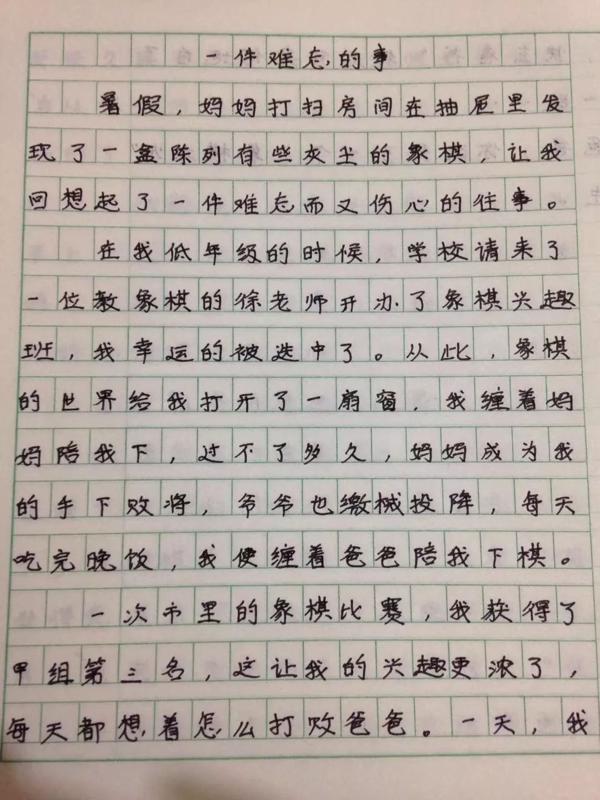 一件难忘的事
暑假，妈妈打扫房间在抽屉里发
现了一盒陈列有些灰尘的象棋，让我
回想起了一件难忘而又伤心的往事。
在我低年级的时候，学校请来了
一位教象棋的徐老师开办了象棋兴趣
班，我幸运的被选中了。从此，象棋
的世界给我打开了一扇窗，我缠着妈
妈陪我下，过不了多久，妈妈成为我
的手下败将，爷爷也缴械投降，每天
吃完晚饭，我便缠着爸爸陪我下棋。
一次市里的象棋比赛，我获得了
甲组第三名，这让我的兴趣更浓了，
每天都想着怎么打败爸爸。一天，我